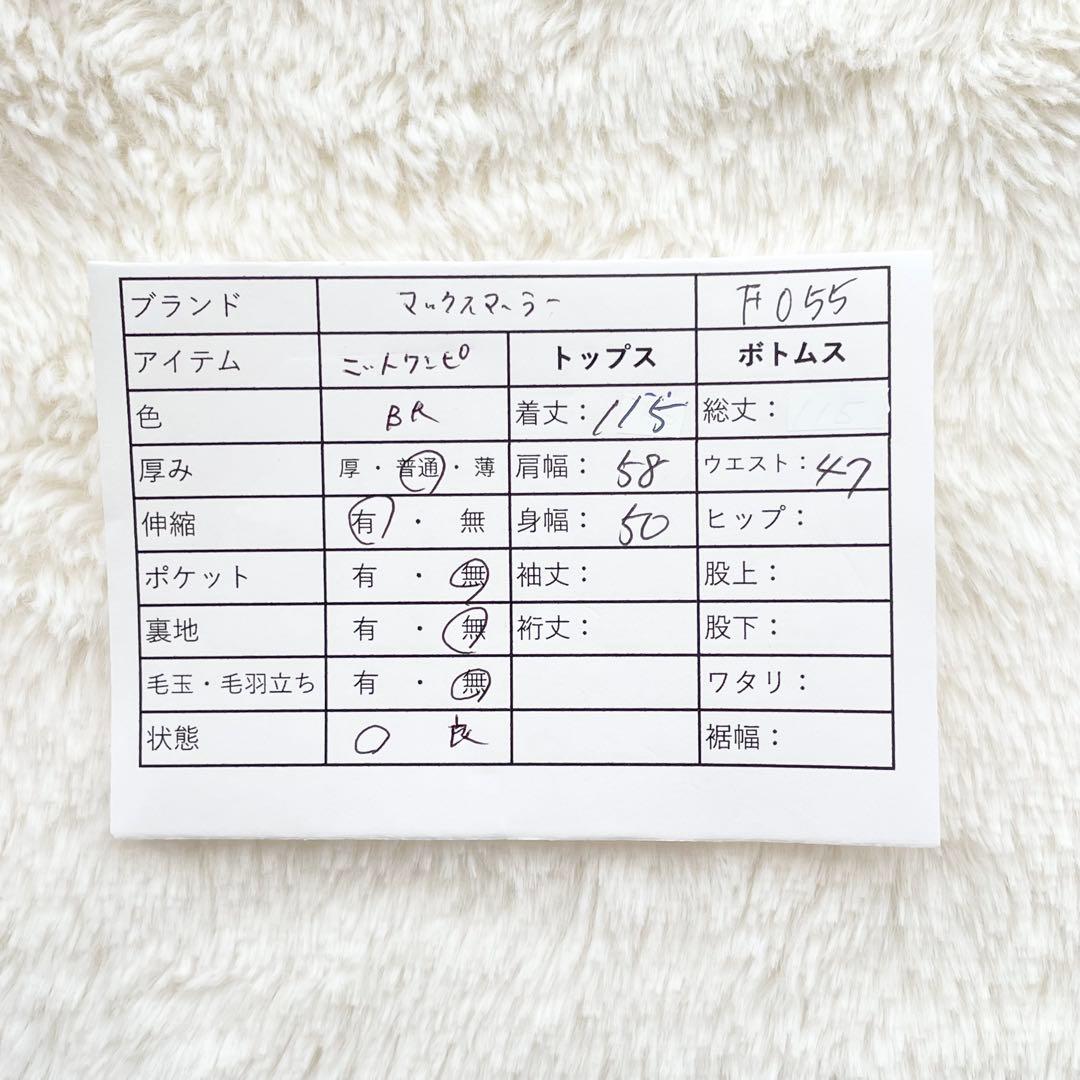 ブランド マックスマーラー F055
アイテム ニットワンピ トップス ボトムス
色 BR 着丈：115 総丈：
厚み 厚・普通・薄 肩幅：58 ウエスト：47
伸縮 有・無 身幅：50 ヒップ：
ポケット 有・無 袖丈： 股上：
裏地 有・無 裄丈： 股下：
毛玉・毛羽立ち 有・無 ワタリ：
状態 〇 良 裾幅：